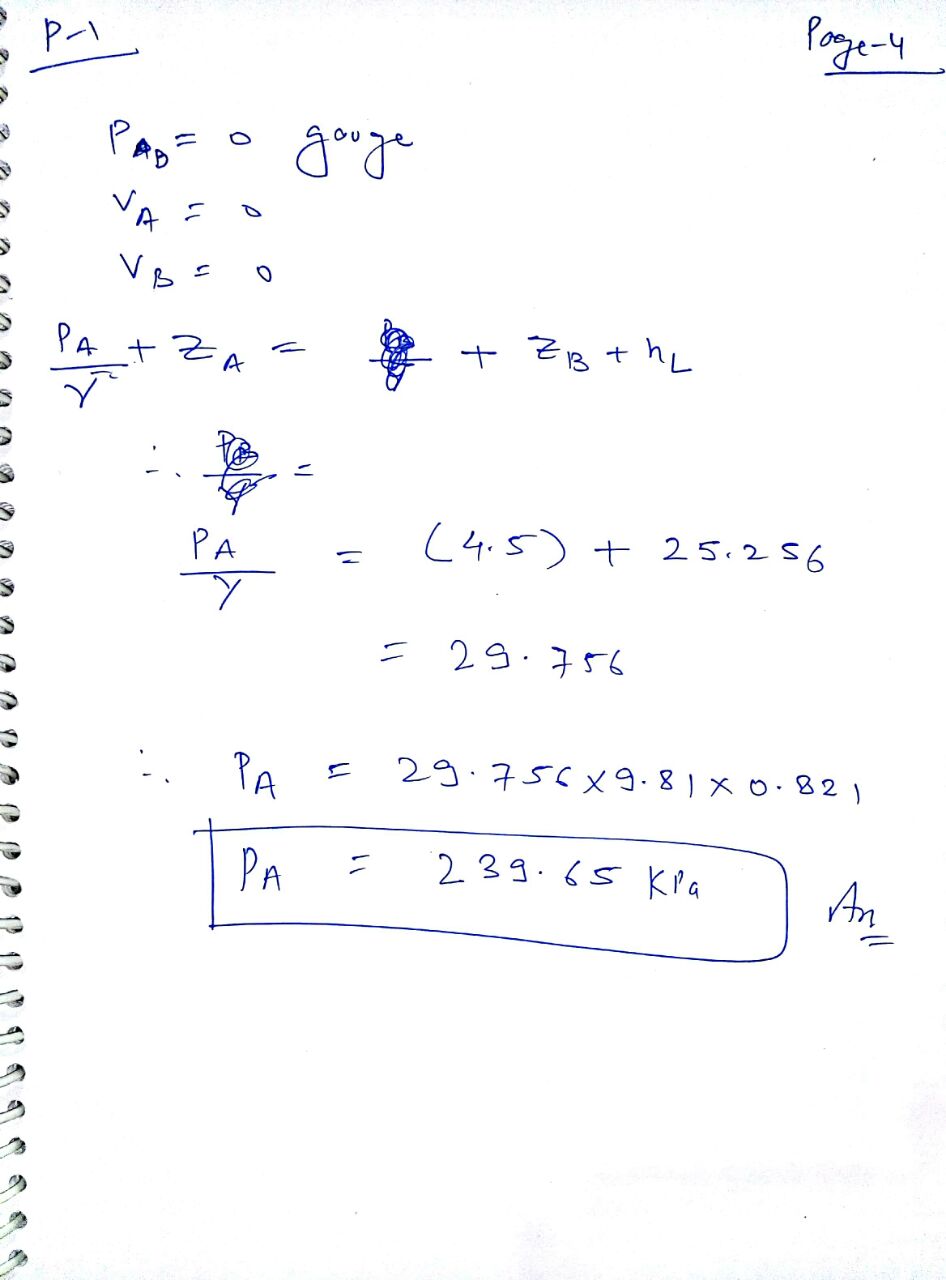 P-1
Page-4
P_B = 0 gauge
V_A = 0
V_B = 0
P_A/γ + Z_A = + Z_B + h_L
∴ =
P_A/γ = (4.5) + 25.256
= 29.756
∴ P_A = 29.756 x 9.81 x 0.821
P_A = 239.65 KPa
An